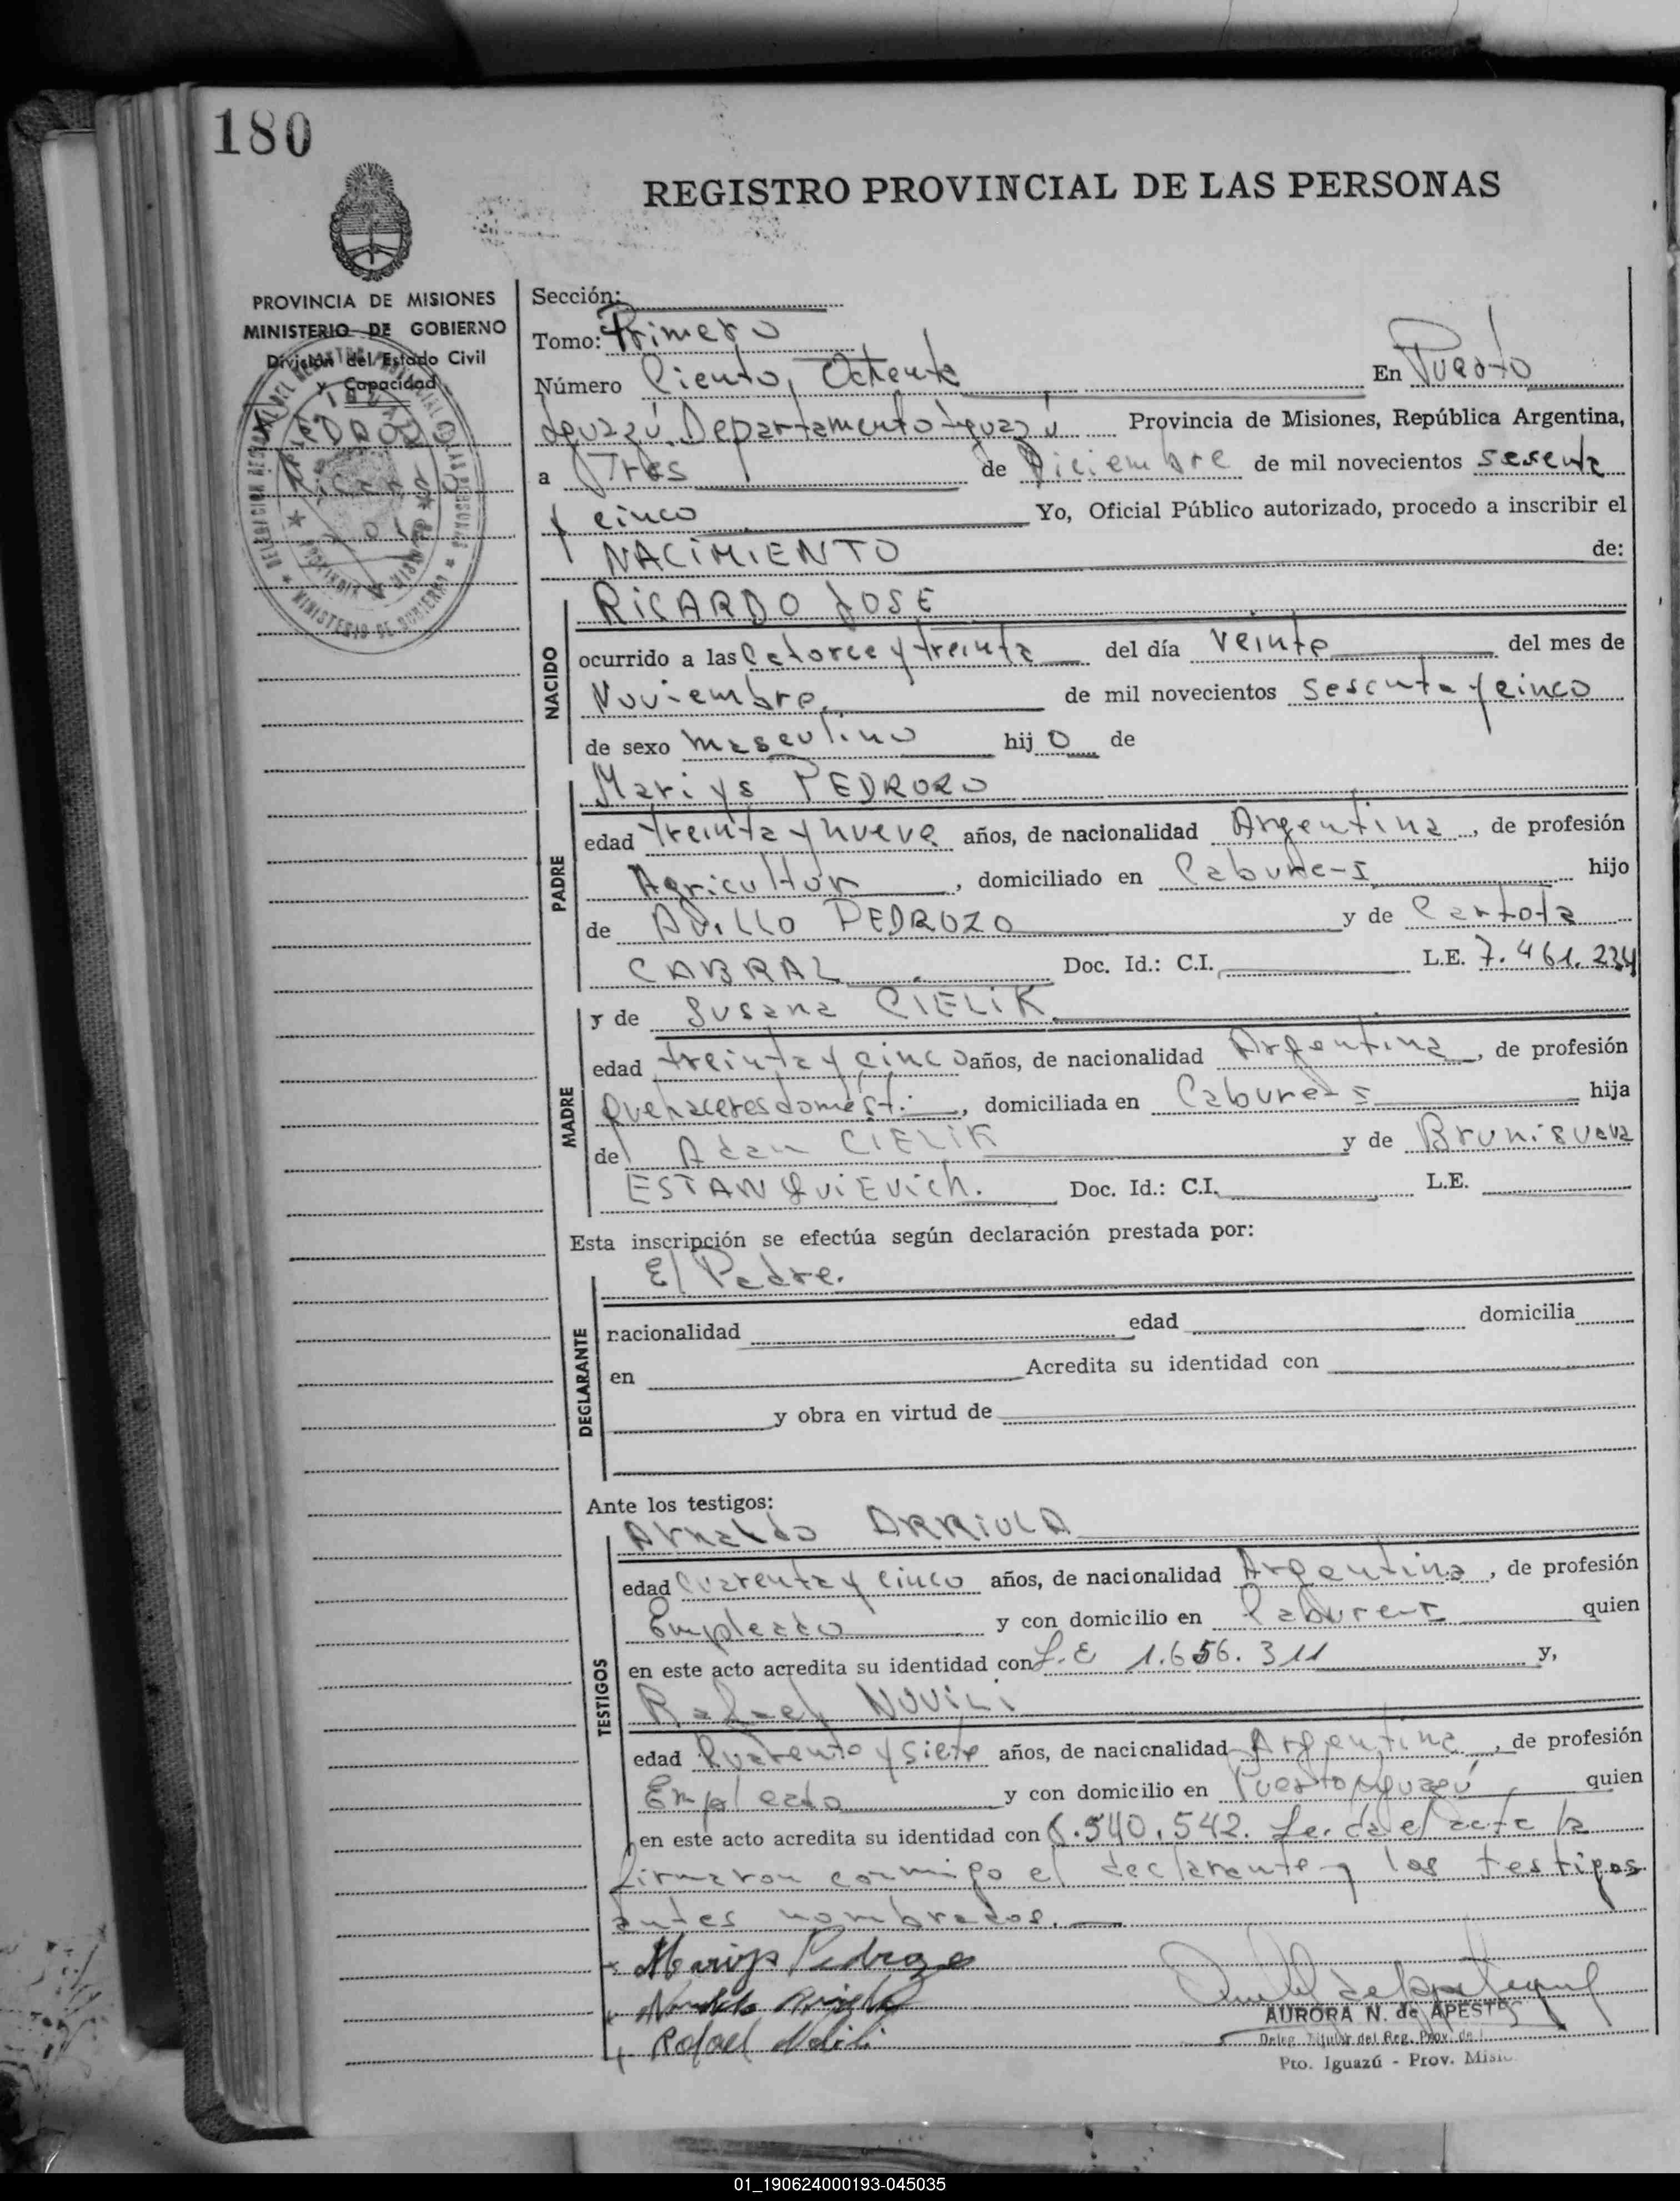 180
REGISTRO PROVINCIAL DE LAS PERSONAS
PROVINCIA DE MISIONES
MINISTERIO DE GOBIERNO
División del Estado Civil
y Capacidad
PEDROZO
Ricardo
José
Sección:
Tomo: Primero
Número Ciento, Ochenta En Puerto
Iguazú. Departamento Iguazú Provincia de Misiones, República Argentina,
a Tres de Diciembre de mil novecientos sesenta
y cinco Yo, Oficial Público autorizado, procedo a inscribir el
NACIMIENTO de:
NACIDO
RICARDO JOSE
ocurrido a las Catorce y treinta del día veinte del mes de
Noviembre. de mil novecientos sesenta y cinco
de sexo masculino hij o de
PADRE
Mariys PEDROZO
edad treinta y nueve años, de nacionalidad Argentina, de profesión
Agricultor, domiciliado en Cabure-I hijo
de Avillo PEDROZO y de Carlota
CABRAL Doc. Id.: C.I. L.E. 7.461.234
MADRE
y de Susana CIELIK.
edad treinta y cinco años, de nacionalidad Argentina, de profesión
Quehaceres domést., domiciliada en Cabure-I hija
de Adan CIELIK y de
ESTANQUIEVICH. Doc. Id.: C.I. L.E.
Esta inscripción se efectúa según declaración prestada por:
El Padre.
DECLARANTE
nacionalidad edad domicilia
en Acredita su identidad con
y obra en virtud de
Ante los testigos:
TESTIGOS
Arnaldo ARRIOLA
edad Cuarenta y cinco años, de nacionalidad Argentina, de profesión
Empleado y con domicilio en Cabure-I quien
en este acto acredita su identidad con L.E 1.656.311 y,
Rafael NOVILI
edad Cuarenta y siete años, de nacionalidad Argentina, de profesión
Empleado y con domicilio en Puerto Iguazú quien
en este acto acredita su identidad con 6.540.542. Leída el acta la
firmaron conmigo el declarante y los testigos
antes nombrados.
Mariys Pedrozo
Rafael
AURORA N. de APESTEG
Deleg. Titular del Reg. Prov. de l
Pto. Iguazú - Prov. Misio
01_190624000193-045035